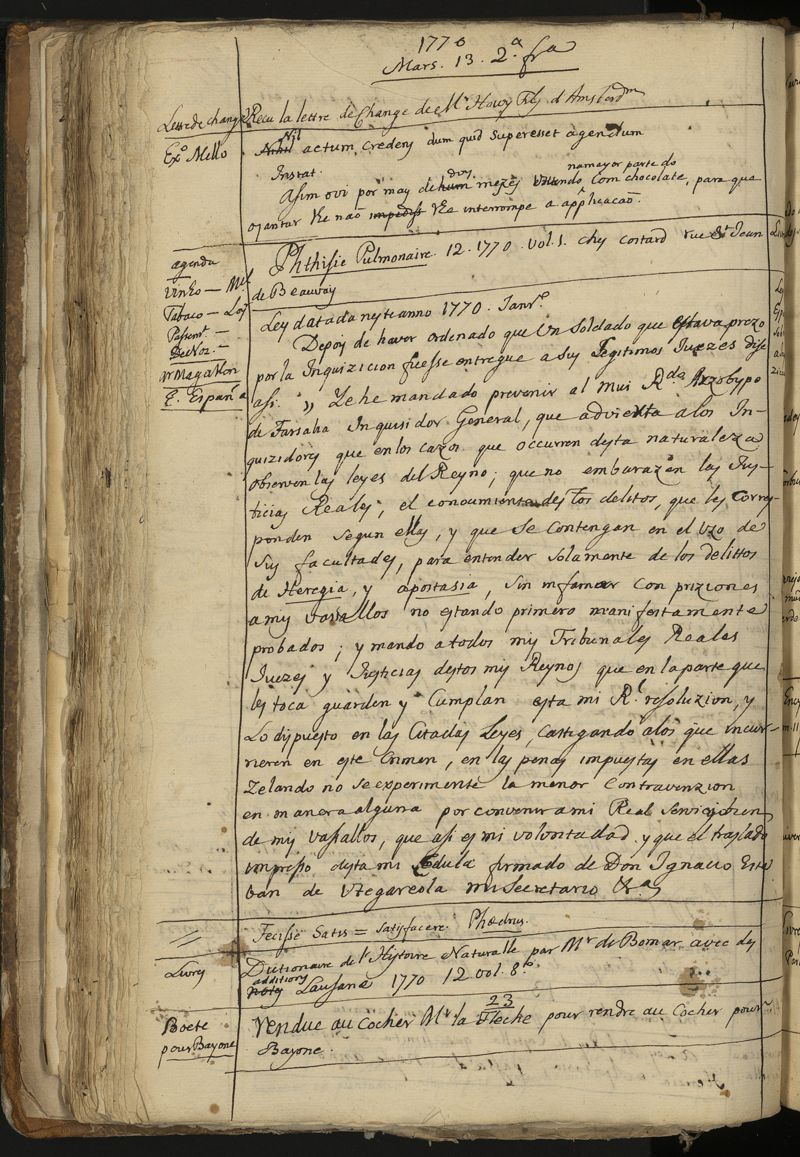 1770
Mars. 13. 2.ª frª
Lettre de change Recu la lettre de Change de Mr. Howy Fils d'Amsterdm
Exº Mello
Nil
Nihil actum credens dum quid superesset agendum
Instat.
Asim ovi por mays de hum dos mezes comendo na mayor parte do Com chocolate, para que
o jantar lhe nao impedisse lhe interrompe a applicacaõ.
agenda
Vinho — Mel
Tabaco — Loj
Passemt —
De Noz. —
Mr Magalhn
E. Españª
Phthisie Pulmonaire. 12. 1770. Vol. 1. chez Costard rue St Jean
de Beauvay
Ley datada neste anno 1770. Janrº.
Depoy de haver ordenado que Un Soldado que estava prezo
por la Inquizicion fuesse entregue a Suy Legitimos Juezes dise
asi. „ Le he mandado prevenir al Mui Rdo Arzobypo
de Farsalia Inquisidor General, que advierta a los In-
quizidores que en los cazos que occurren desta naturaleza
observen las leyes del Reyno; que no embarazen las Jus-
ticias Reales, el concumiento destos delitos, que les Corres-
ponden segun ellas, y que se Contengan en el Uzo de
Suy facultades, para entender solamente de los delittos
de Heregia, y apostasia, sin infamar Con priziones
a my vasallos no estando primero manifestamente
probados; y mando a todos mis Tribunales Reales
Juezes y Justicias destos mis Reynos que en la parte que
les toca guarden y Cumplan esta mi Rl. resoluzion, y
Lo dispuesto en las Citadas Leyes, Castigando a los que incur-
rieren en este Crimen, en las penas impuestas en ellas
Zelando no se experimente la menor Contravenzion
en manera alguna por convenir a mi Real Servicio y bien
de mis vassallos, que asi es mi voluntadad. y que el traslado
impresso desta mi Cedula firmado de Don Ignacio Este
ban de Ytegareola mi Secretario &ª
// Fecisse Satis = Satisfacere. Phædrus.
Livres
Dictionaire de l'Hystoire Naturalle par Mr de Bomar avec des
additions
notes Lausane 1770 12 vol. 8º.
23
Boete
pour Bayone
Vendue au Cocher Mr. la Fleche pour rendre au Cocher pour
Bayone.